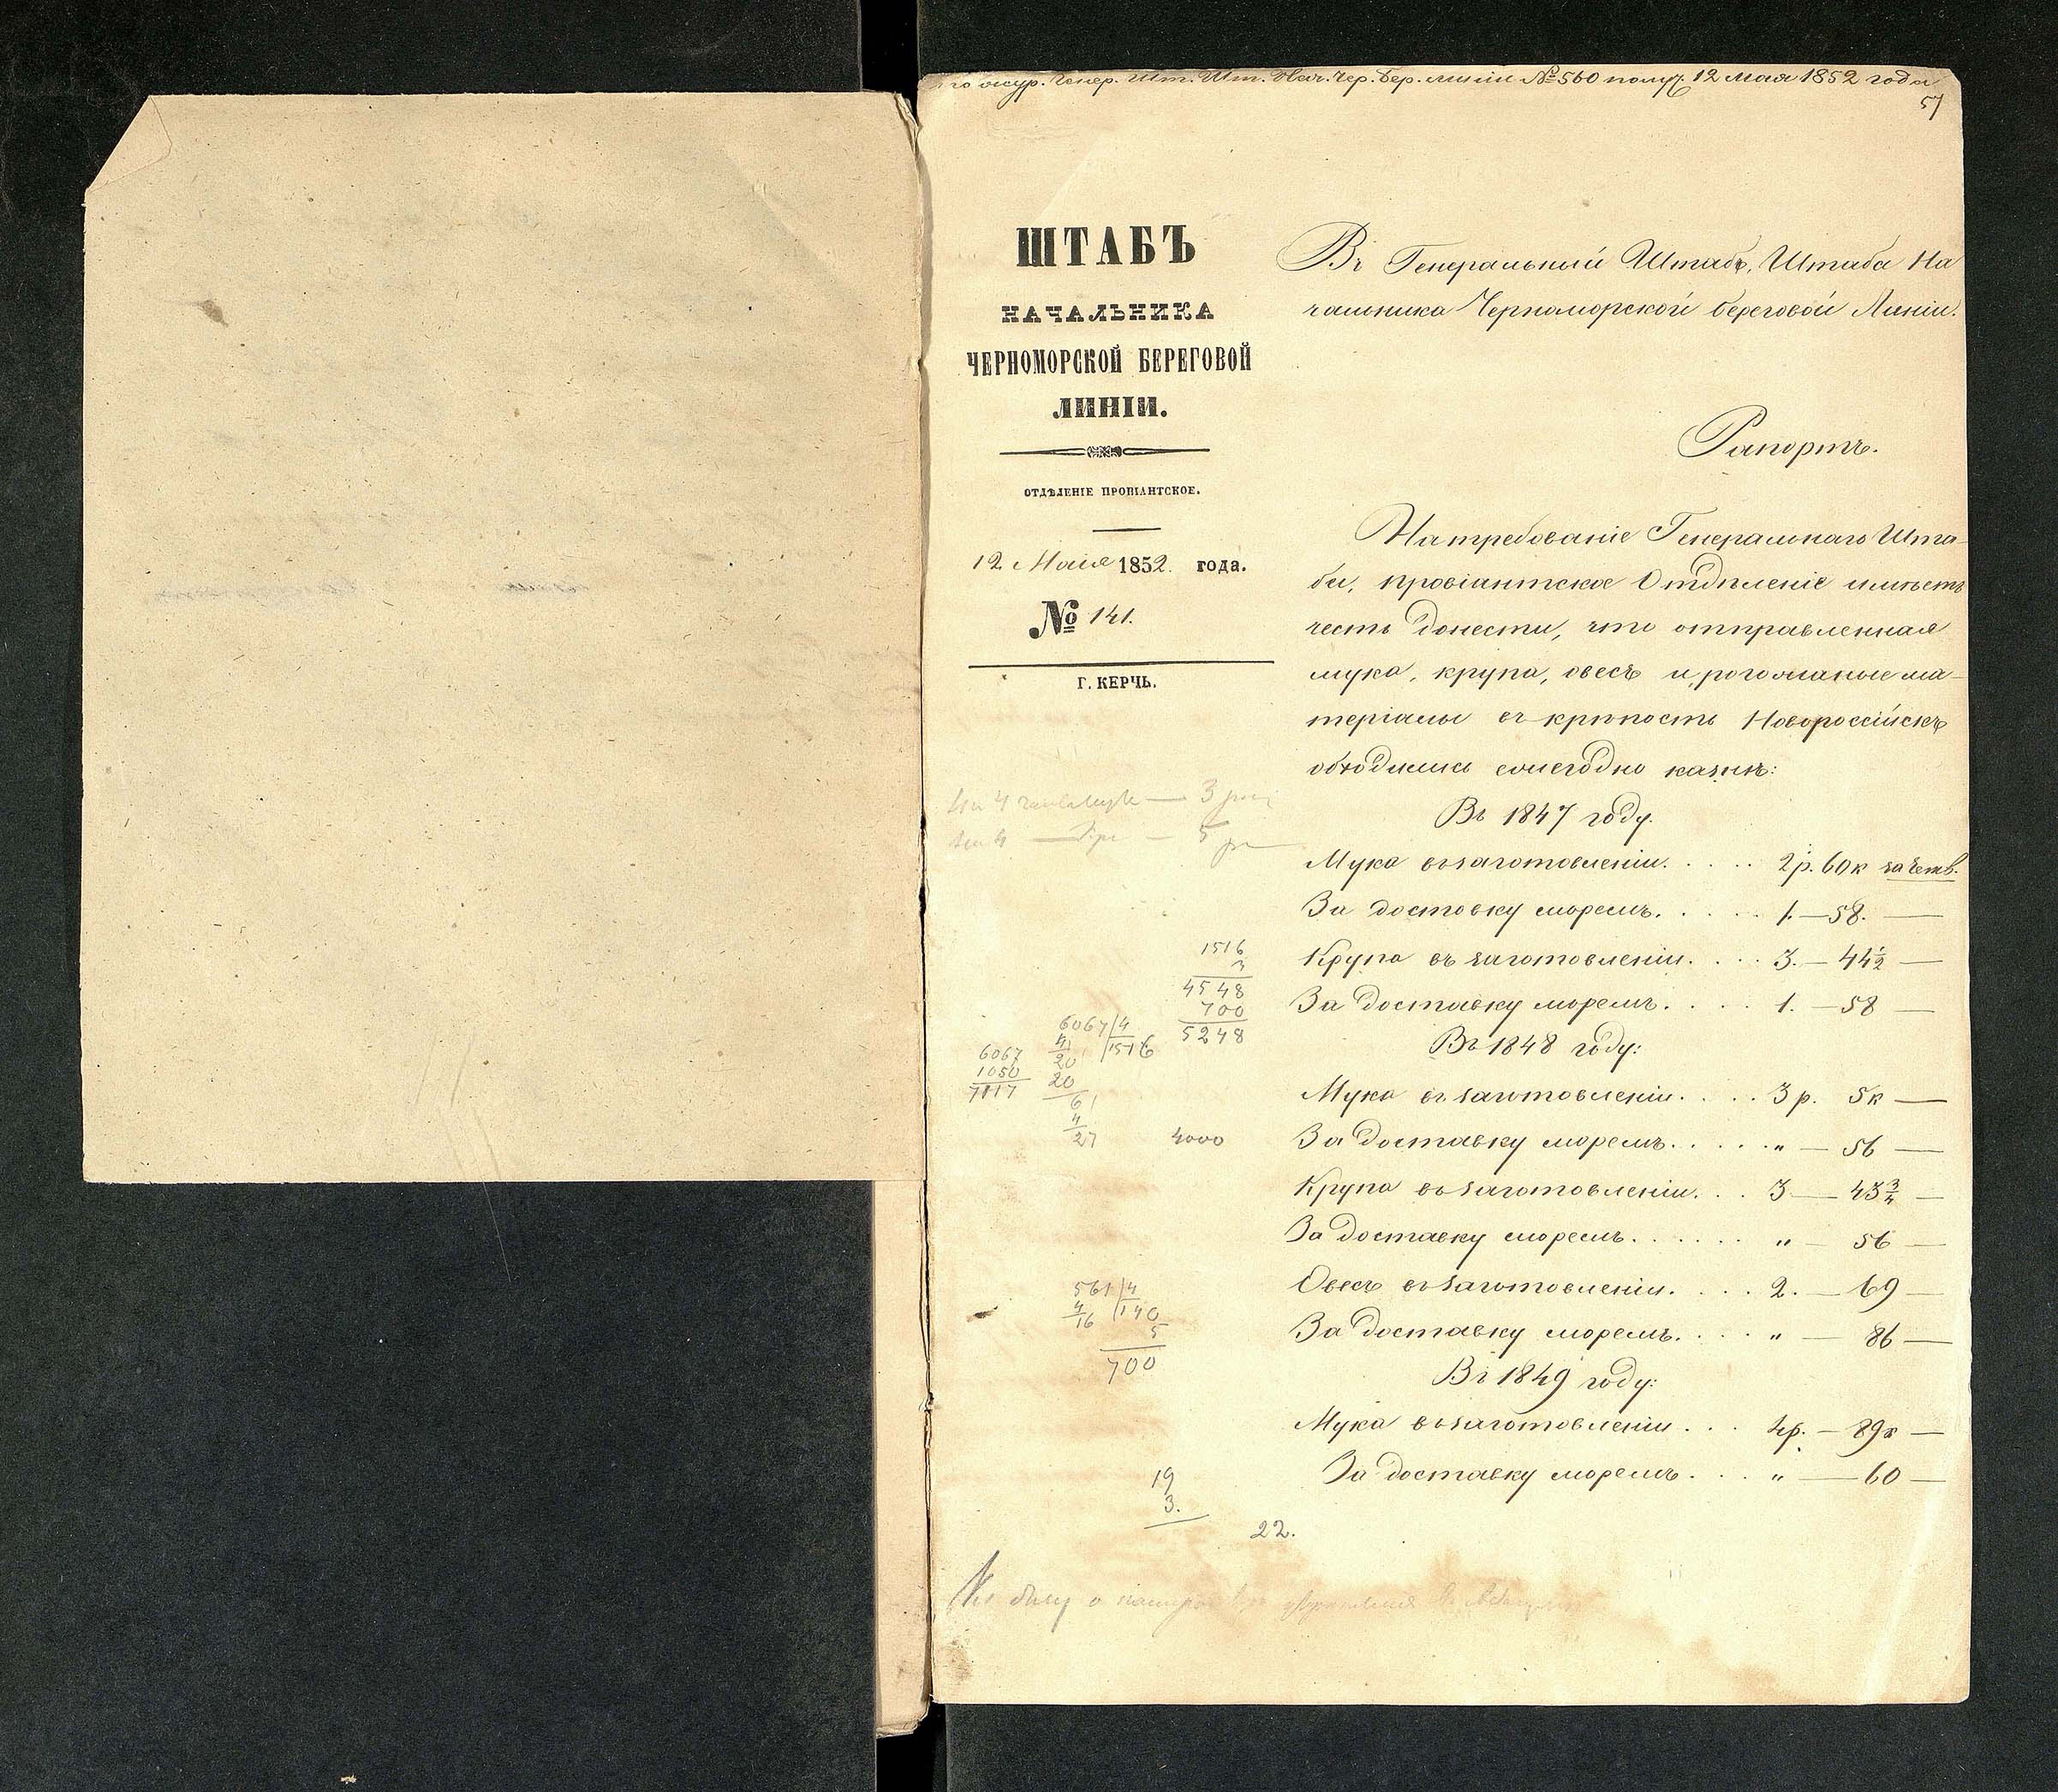 по жур. Генер. Шт. Шт. Нач. Чер. Бер. линіи № 560 получ. 12 Мая 1852 года
57
ШТАБЪ
НАЧАЛЬНИКА
ЧЕРНОМОРСКОЙ БЕРЕГОВОЙ
ЛИНІИ.
ОТДѢЛЕНІЕ ПРОВІАНТСКОЕ.
12 Маія 1852 года.
№ 141.
Г. КЕРЧЬ.
Въ Генеральный Штабъ, Штаба На
чальника Черноморской береговой Линіи.
Рапортъ.
На требованіе Генеральнаго Шта-
ба, провіантское Отдѣленіе имѣетъ
честь донести, что отправленная
мука, крупа, овесъ и рогожаные ма-
теріалы въ крѣпость Новороссійскъ
обходились ежегодно казнѣ:
Въ 1847 году.
Мука въ заготовленіи. . . . . 2 р. 60 к за четв.
За доставку моремъ. . . . . 1. — 58. —
Крупа въ заготовленіи. . . . 3. — 44½ —
За доставку моремъ. . . . . 1. — 58 —
Въ 1848 году:
Мука въ заготовленіи. . . . . 3 р. 5 к —
За доставку моремъ. . . . . „ — 56 —
Крупа въ заготовленіи. . . 3 — 43¾ —
За доставку моремъ. . . . . . „ — 56 —
Овесъ въ заготовленіи. . . . . 2. — 69 —
За доставку моремъ. . . . . „ — 86 —
Въ 1849 году:
Мука въ заготовленіи . . . 4 р. — 89 к —
За доставку моремъ. . . . „ — 60 —
1516
3
4548
700
5248
6067 | 4
4 | 1516
20
20
6
4
27
6067
1050
7117
4000
561 | 4
4 | 140
16
5
700
19
3.
22.